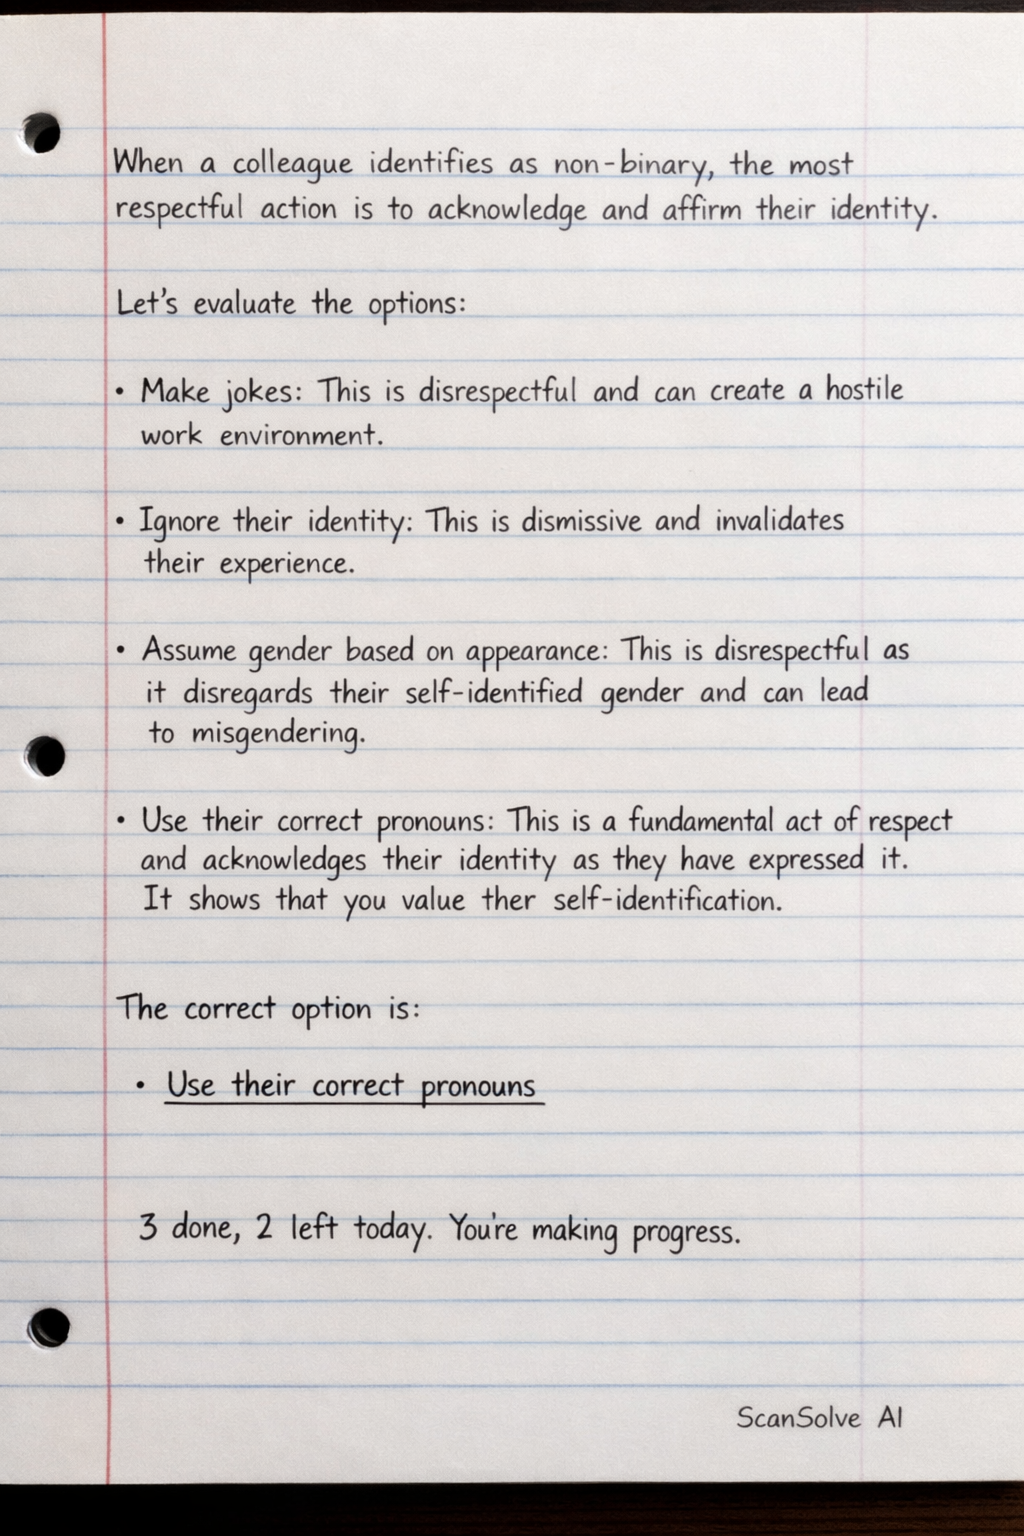 When a colleague identifies as non-binary, the most
respectful action is to acknowledge and affirm their identity.
Let's evaluate the options:
• Make jokes: This is disrespectful and can create a hostile
work environment.
• Ignore their identity: This is dismissive and invalidates
their experience.
• Assume gender based on appearance: This is disrespectful as
it disregards their self-identified gender and can lead
to misgendering.
• Use their correct pronouns: This is a fundamental act of respect
and acknowledges their identity as they have expressed it.
It shows that you value ther self-identification.
The correct option is:
• Use their correct pronouns
3 done, 2 left today. You're making progress.
ScanSolve AI